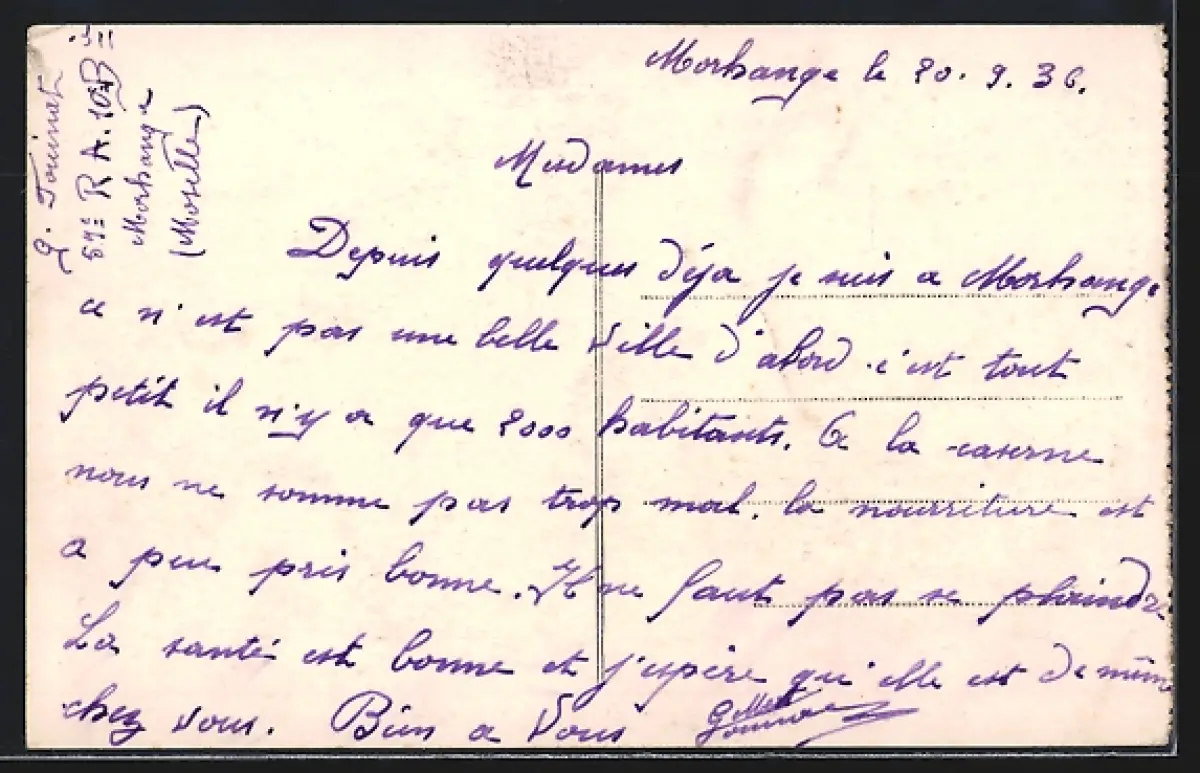 Morhange le 20.9.36.
Madames
Depuis quelques déja je suis a Morhange
ce n'est pas une belle Ville d'abord c'est tout
petit il n'y a que 2000 habitants. A la caserne
nous ne somme pas trop mal. la nourriture est
a peu pris bonne. Il ne faut pas se plaindre
La santé est bonne et j'espère qu'elle est de même
chez vous. Bien a Vous
R.A.
Morhange
(Moselle)